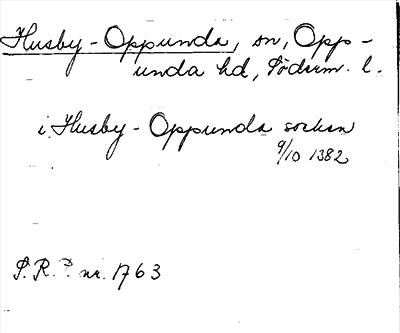 Husby-Oppunda, sn, Opp-
unda hd, Söderm. l.
i Husby-Oppunda sockan
9/10 1382
S.R.P. nr. 1763